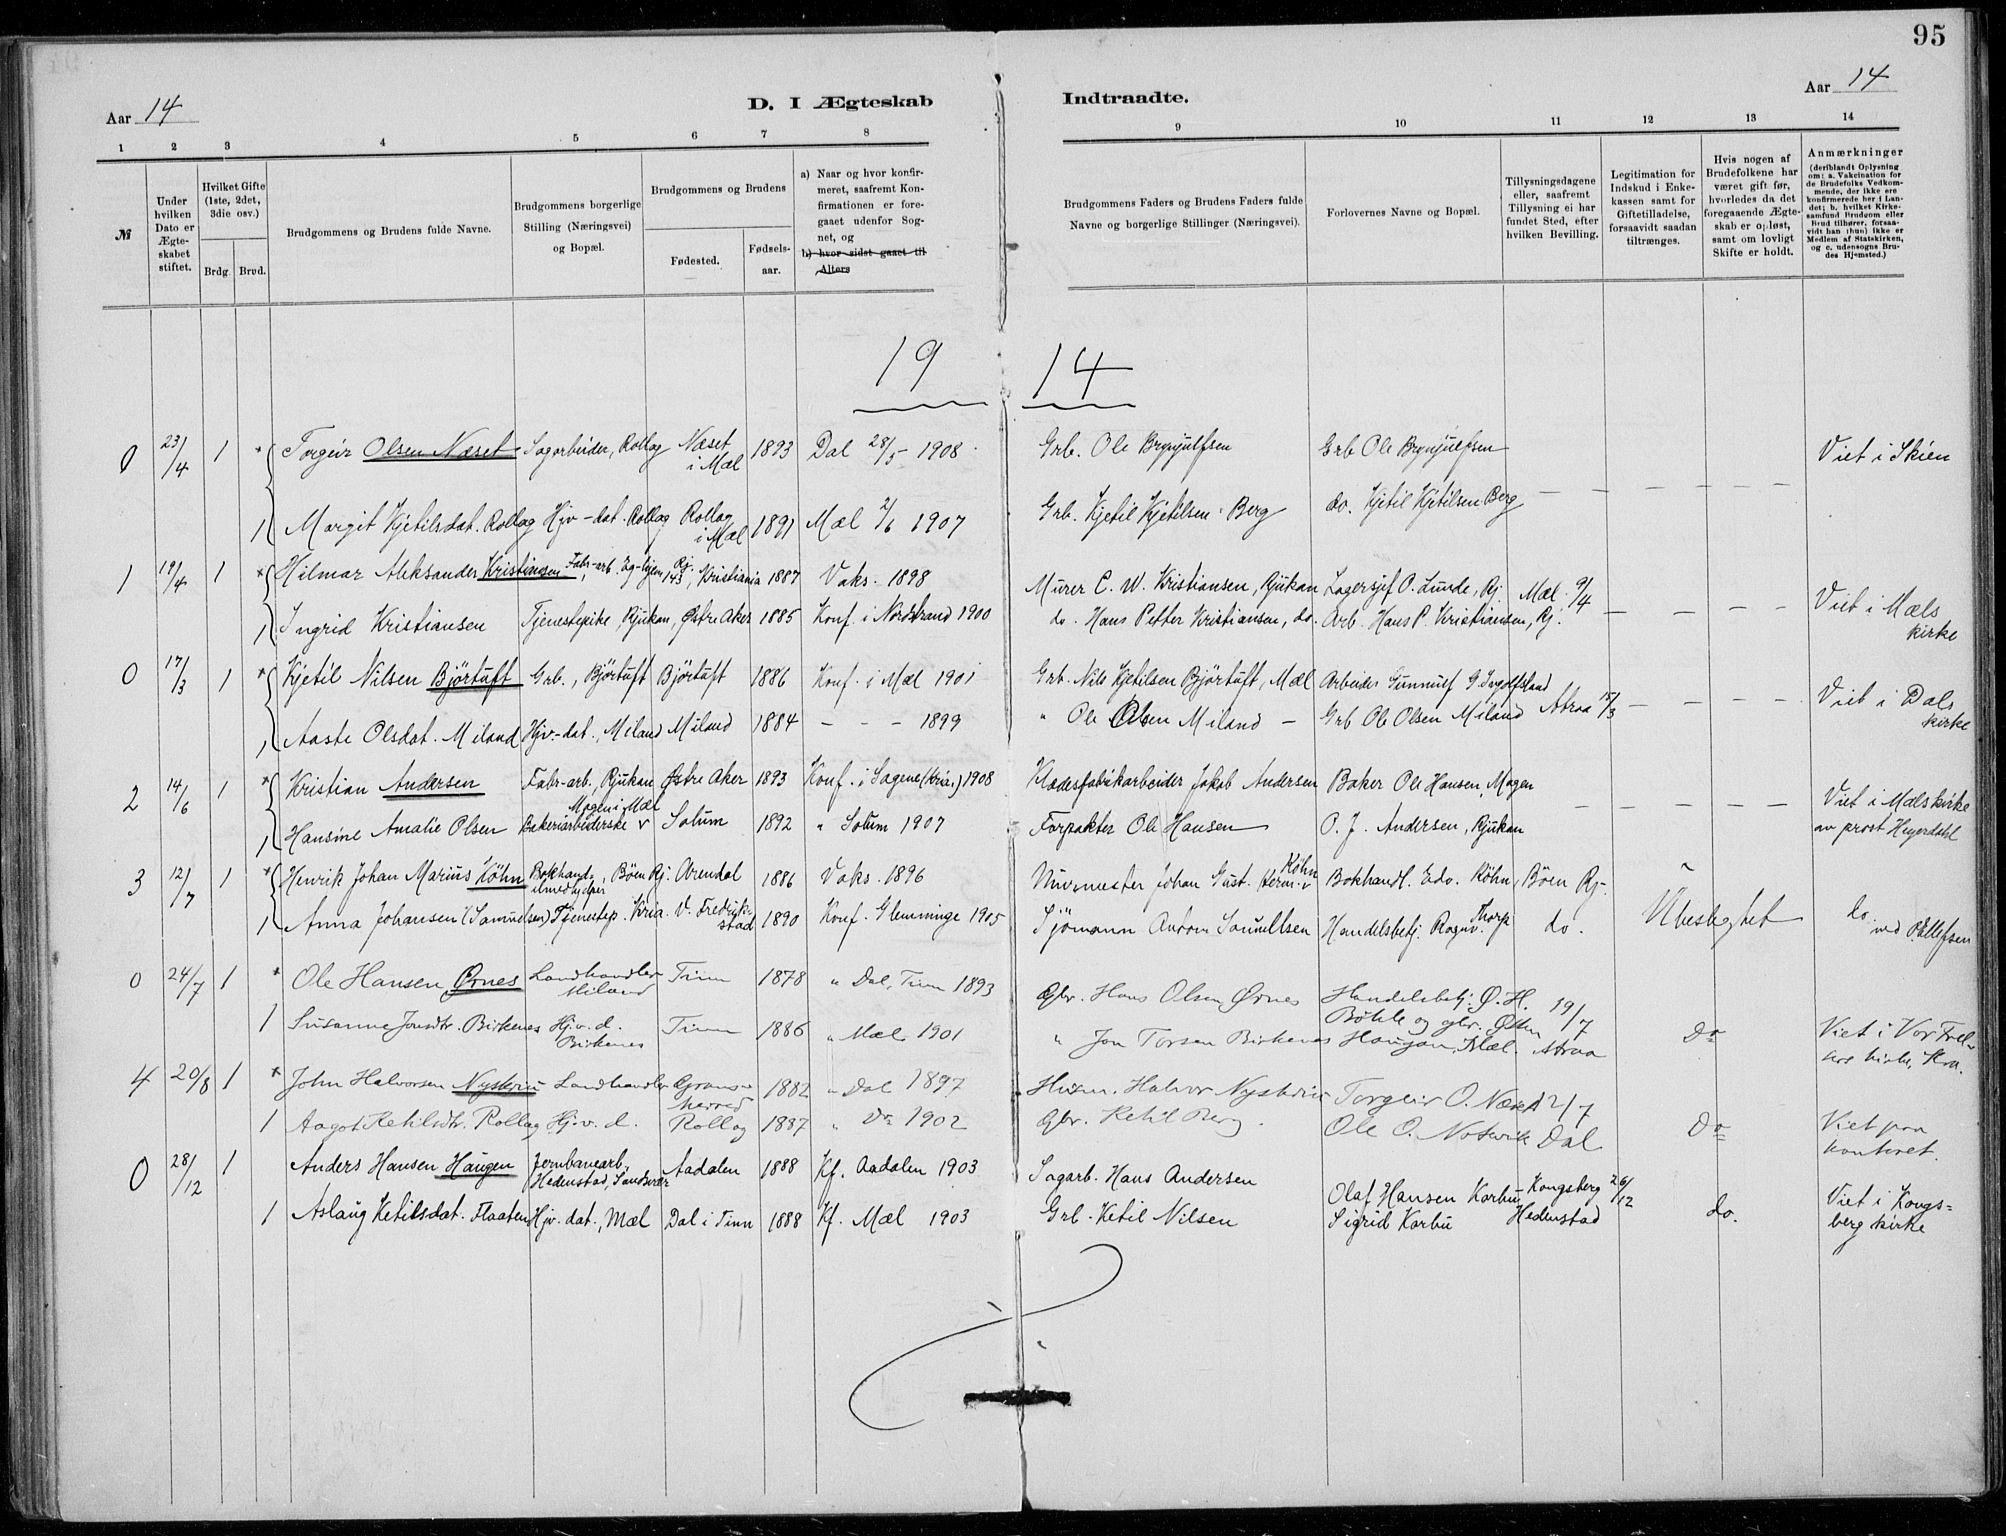 95
Aar 14
D. I Ægteskab
Indtraadte.
Aar 14
1 2 3 4 5 6 7 8 9 10 11 12 13 14
№
Under hvilken Dato er Ægteskabet stiftet.
Hvilket Gifte (1ste, 2det, 3die osv.)
Brdg. Brud.
Brudgommens og Brudens fulde Navne.
Brudgommens borgerlige Stilling (Næringsvei) og Bopæl.
Brudgommens og Brudens
Fødested.
Fødselsaar.
a) Naar og hvor konfirmeret, saafremt Konfirmationen er foregaaet udenfor Sognet, og
b) hvor sidst gaaet til Alters
Brudgommens Faders og Brudens Faders fulde Navne og borgerlige Stillinger (Næringsvei).
Forlovernes Navne og Bopæl.
Tillysningsdagene eller, saafremt Tillysning ei har fundet Sted, efter hvilken Bevilling.
Legitimation for Indskud i Enkekassen samt for Giftetilladelse, forsaavidt saadan tiltrænges.
Hvis nogen af Brudefolkene har været gift før, hvorledes da det foregaaende Ægteskab er opløst, samt om lovligt Skifte er holdt.
Anmærkninger (deriblandt Oplysning om: a. Vakcination for de Brudefolks Vedkommende, der ikke ere konfirmerede her i Landet; b. hvilket Kirkesamfund Brudgom eller Brud tilhører, forsaavidt han (hun) ikke er Medlem af Statskirken, og c. udensogns Brudes Hjemsted.)
19 14
0 23/4 1 * Torgeir Olsen Næset Sagarbeider, Rollag Næset i Mæl 1893 Dal 28/5 1908 Grb. Ole Brynjulfsen Grb Ole Brynjulfsen Viet i Skien
1 Margit Kjetilsdat. Rollag Hjv-dat. Rollag Rollag i Mæl 1891 Mæl 2/6 1907 Grb. Kjetil Kjetilsen Berg do. Kjetil Kjetilsen Berg — — — —
1 19/4 1 * Hilmar Aleksander Kristiansen Fabr-arb., Eg-hjem Rj. 143, Kristiania 1887 Vaks. 1898 Murer C. W. Kristiansen, Rjukan Lagersjef O. Lunde, Rj. Mæl 9/4 Viet i Mæls kirke
1 Ingrid Kristiansen Tjenestepike Rjukan, Østre Aker 1885 Konf. i Nordstrand 1900 do. Hans Petter Kristiansen, do. Arb. Hans P. Kristiansen, Rj. — — — —
0 17/3 1 * Kjetil Nilsen Björtuft Grb., Björtuft Björtuft 1886 Konf. i Mæl 1901 Grb. Nils Kjetilsen Björtuft, Mæl Arbeider Gunnulf G. Ingolfsland Viet i Dals kirke
1 Aaste Olsdat. Miland Hjv.-dat., Miland Miland 1884 — — — 1899 " Ole Olsen Miland — Grb Ole Olsen Miland Atraa 15/3 — — — —
2 14/6 1 * Kristian Andersen Fabr-arb., Rjukan Østre Aker 1893 Konf. i Sagene (Kria.) 1908 Klædesfabrikarbeider Jakob Andersen Baker Ole Hansen, Mogen Viet i Mæls kirke
1 Hansine Amalie Olsen Bakeriarbeiderske Mogen i Mæl Solum 1892 " Solum 1907 Forpakter Ole Hansen O. J. Andersen, Rjukan — — — — av prost Heyerdahl
3 12/7 1 * Henrik Johan Marius Köhn Bokhand., Böen Rj. Arendal 1886 Vaks. 1896 Murmester Johan Gust. Herm. Köhn Bokhandl. Edv. Köhn, Böen Rj.
1 Anna Johansen (Samuelsen) Tjenestep. Kria. V. Fredrikstad 1890 Konf. Glemminge 1905 Sjömann Samuelsen Handelsbetj. Ragnv. Thorp do. Ubeslegtet do. ved Ellefsen
0 24/7 1 * Ole Hansen Ørnes Landhandler Miland Tinn 1878 " Dal, Tinn 1893 Gbr. Hans Olsen Ørnes Handelsbetj. Ø. H. Böhle og gbr. Østen Haugan, Mæl. 19/7 Atraa
1 Susanne Jonsdtr. Birkenes Hjv. d. Birkenes Tinn 1886 " Mæl 1901 " Jon Torsen Birkenes Do Viet i Vor Frelsers kirke, Kra.
4 20/8 1 * John Halvorsen Nyskriu Landhandler Gransherred 1882 " Dal 1897 Husm. Halvor Nyskriu Torgeir O. Næset 12/7
1 Aagot Ketilsdtr. Rollag Hjv. d. Rollag 1887 " Do 1902 Gbr. Ketil Berg Ole O. Dal Do Viet paa kontoret.
0 28/12 1 Anders Hansen Haugen Jernbanearb., Hedenstad, Sandsvær Aadalen 1888 Kf. Aadalen 1903 Sagarb. Hans Andersen Olaf Hansen Korbu Kongsberg 26/12
1 Aslaug Ketilsdat. Flaaten Hjv. dat., Mæl Dal i Tinn 1888 Kf. Mæl 1903 Grb. Ketil Nilsen Sigrid Korbu Hedenstad do. Viet i Kongsberg kirke